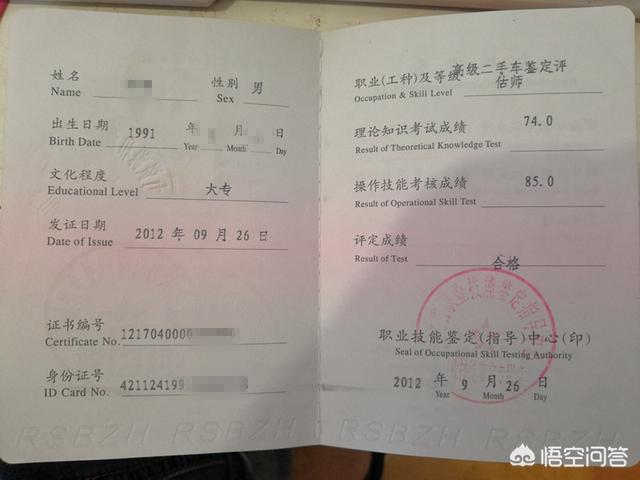 姓名
Name
性别 男
Sex
出生日期 1991 年 月 日
Birth Date Year Month Day
文化程度 大专
Educational Level
发证日期 2012 年 09 月 26 日
Date of Issue
证书编号
Certificate No. 1217040000
身份证号
ID Card No. 421124199
RSBZH RSBZH
职业(工种)及等级 高级二手车鉴定评
估师
Occupation & Skill Level
理论知识考试成绩 74.0
Result of Theoretical Knowledge Test
操作技能考核成绩 85.0
Result of Operational Skill Test
评定成绩
Result of Test 合格
职业技能鉴定(指导)中心(印)
Seal of Occupational Skill Testing Authority
2012 年 9 月 26 日
Year Month Day
RSBZH RSBZH
悟空问答